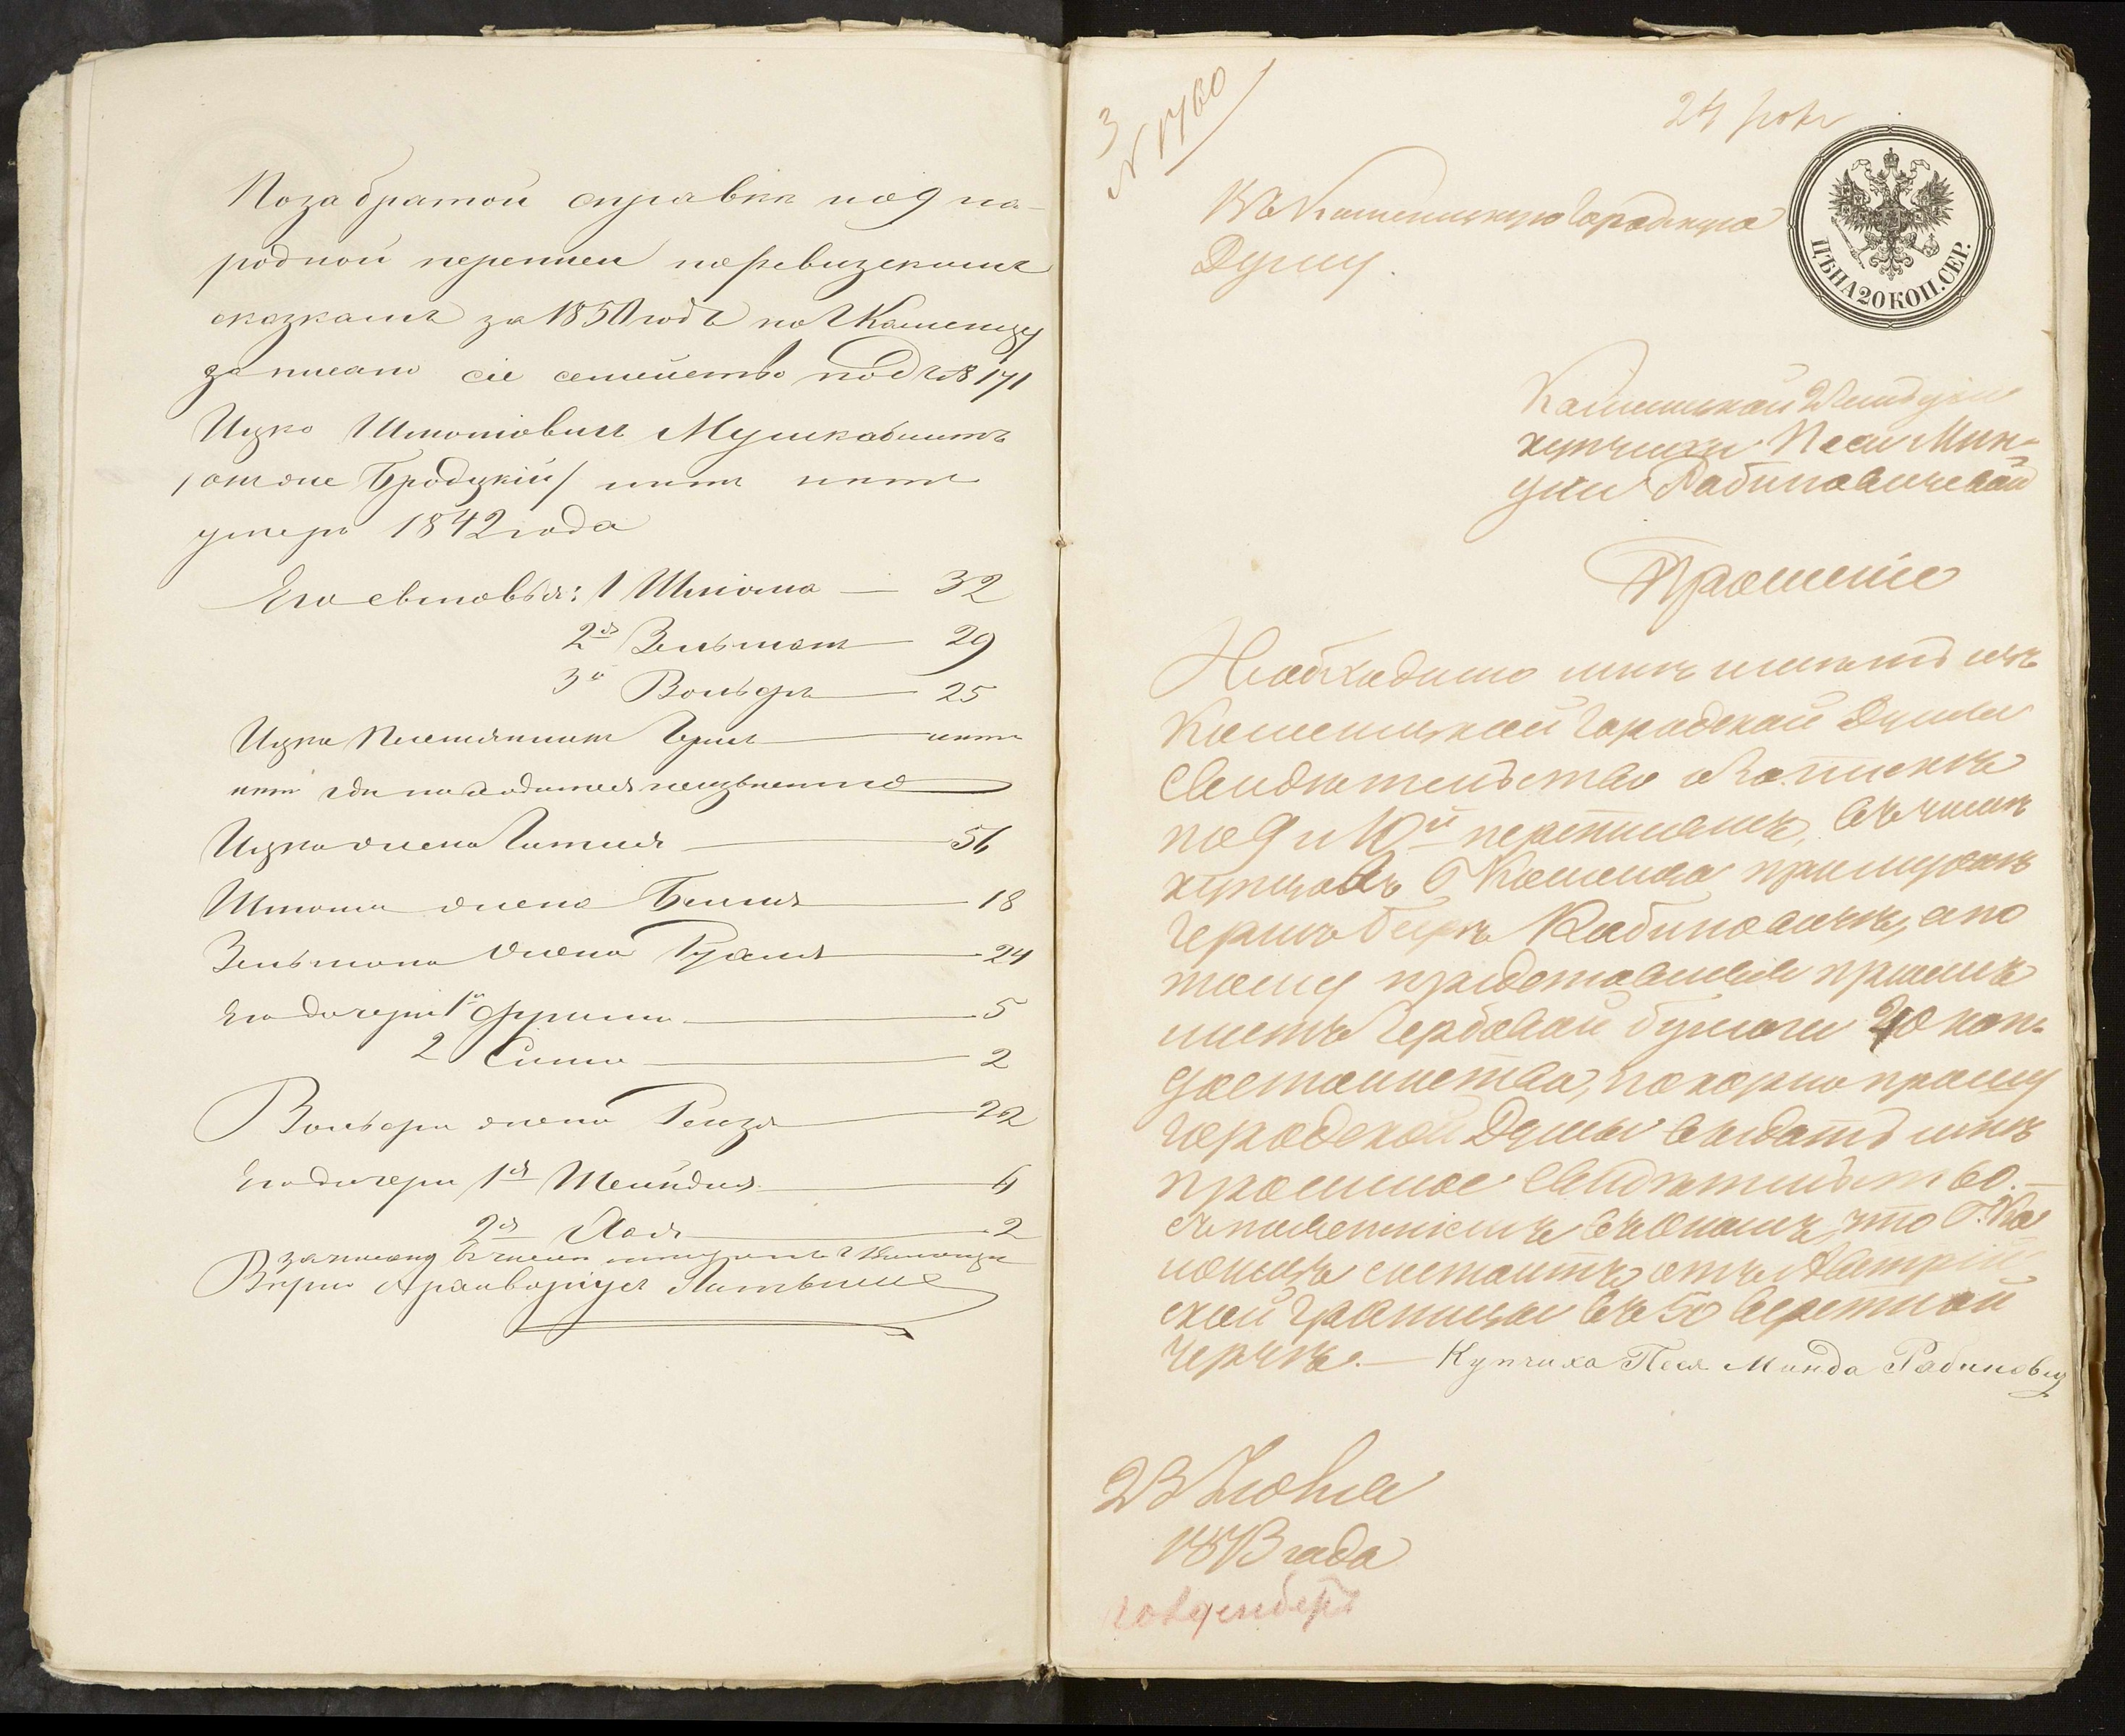 Позабратой справки по 9 на-
родной переписи по ревизскимъ
сказкамъ за 1850 годъ по г Каменцу
записано сіе семейство подъ № 171
Ицко Шліомовичъ Мушкаблитъ
/ онъ же Бродуцкій/ лѣтъ
умеръ 1842 года
Его сыновья: 1 Шліома — 32
2й Зельман — 29
3й Вольфъ — 25
Ицка Племянникъ Герш
гдѣ находится неизвѣстно
Ицка жена Гитля — 56
Шліомы жена Бейля — 18
Зельмана жена Рухля — 24
Его дочери 1я Фрима — 5
2 Сима — 2
Вольфа жена Рейзя — 22
Его дочери 1я Шейндля — 6
2я Хая — 2
записаны въ числѣ г Каменца
Вѣрно
3
№ 1760
24
Въ Каменецкую Городскую
Думу.
ЦѢНА 20 КОП. СЕР.
Каменецкой 2й Гильдіи
купчихи Песи Мин-
ди Рабиновичевой
Прошеніе
Необходимо мнѣ имѣть изъ
Каменецкой Городской Думы
Свидѣтельство о запискѣ
по 9 и 10й переписямъ, въ числѣ
купцовъ Г Каменца
Герша Берк Рабиновичъ, а по
тому представляя при семъ
листъ Гербовой бумаги 20 коп.
достоинства, покорно прошу
городской Думы выдать мнѣ
просимое Свидѣтельство. —
съ поясненіемъ въ ономъ, что Г. Ка
менецъ состоитъ отъ Австрій-
ской границы въ 50 верстной
чертѣ. — Купчиха Песя Минда Рабинович
23 Іюня
1873 года